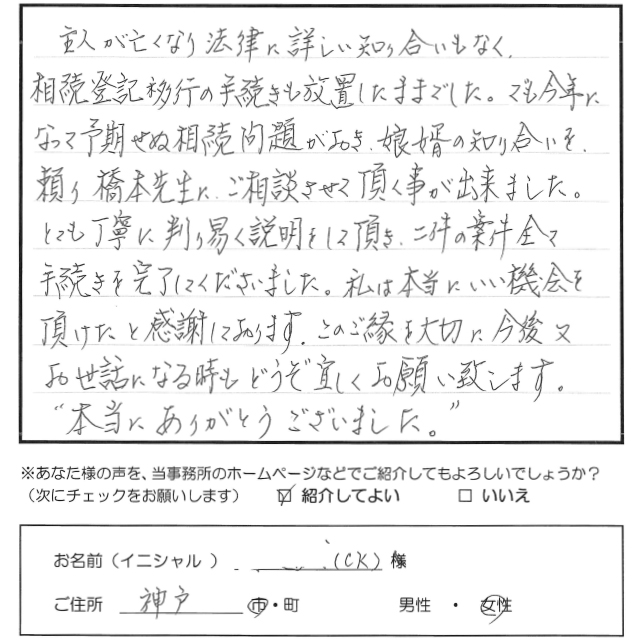 主人が亡くなり法律に詳しい知り合いもなく、
相続登記移行の手続きも放置したままでした。でも今年に
なって予期せぬ相続問題がおき、娘婿の知り合いを、
頼り橋本先生に、ご相談させて頂く事が出来ました。
とても丁寧に判り易く説明をして頂き、二件の案件全て
手続きを完了してくださいました。私は本当にいい機会を
頂けたと感謝しております。このご縁を大切に今後又
お世話になる時もどうぞ宜しくお願い致します。
“本当にありがとうございました。”
※あなた様の声を、当事務所のホームページなどでご紹介してもよろしいでしょうか？
（次にチェックをお願いします） ☑ 紹介してよい □ いいえ
お名前（イニシャル ） (CK) 様
ご住所 神戸 市・町 男性 ・ 女性